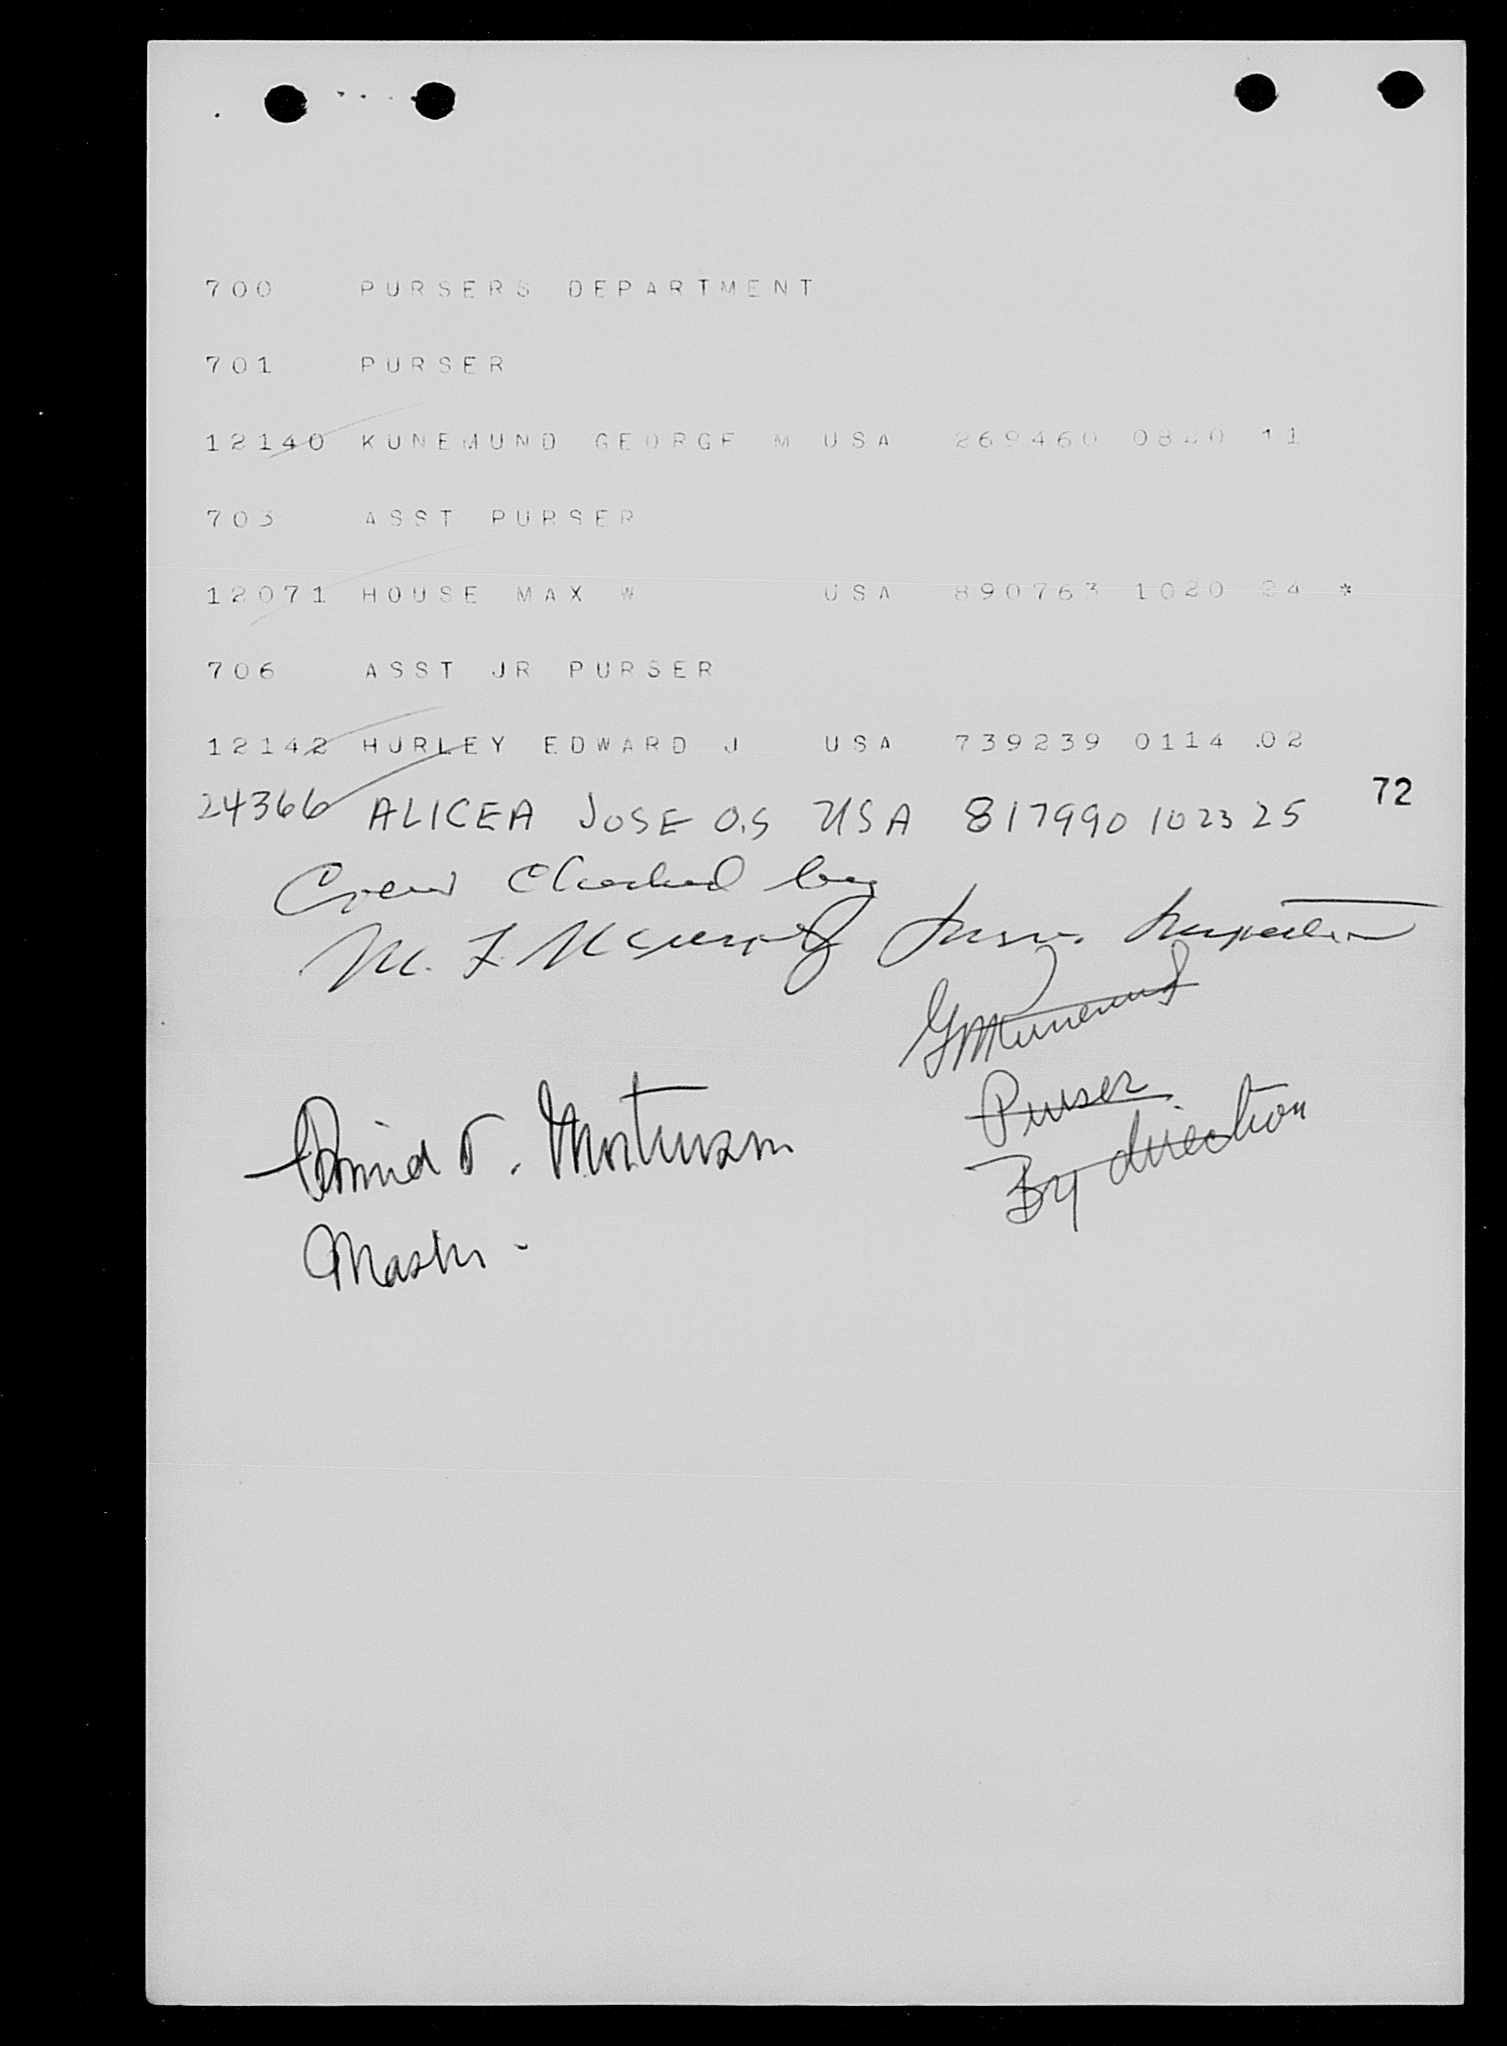 700 PURSERS DEPARTMENT
701 PURSER
12140 KUNEMUND GEORGE M USA 269460 0820 11
703 ASST PURSER
12071 HOUSE MAX W USA 890763 1020 24 *
706 ASST JR PURSER
12142 HURLEY EDWARD J USA 739239 0114 02
72
24366 ALICEA JOSE O.S USA 817990 1023 25
Crew checked by
M. F. Imm. Inspector
GMKunemund
Purser
By direction
Mortensen
Master